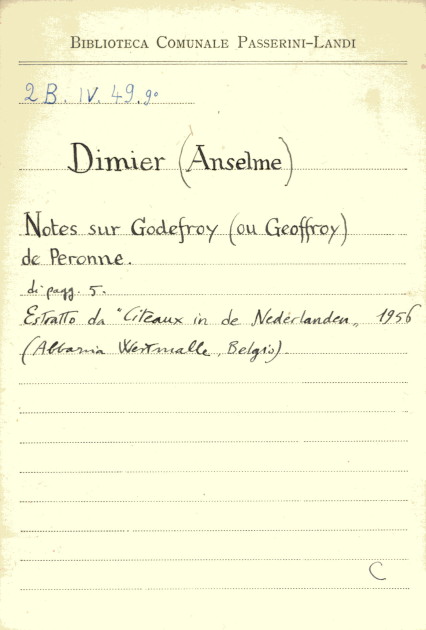 BIBLIOTECA COMUNALE PASSERINI-LANDI
2 B. IV. 49. 9°
Dimier (Anselme)
Notes sur Godefroy (ou Geoffroy)
de Peronne.
di pagg. 5.
Estratto da "Citeaux in de Nederlanden„ 1956
(Abbazia Westmalle, Belgio).
C